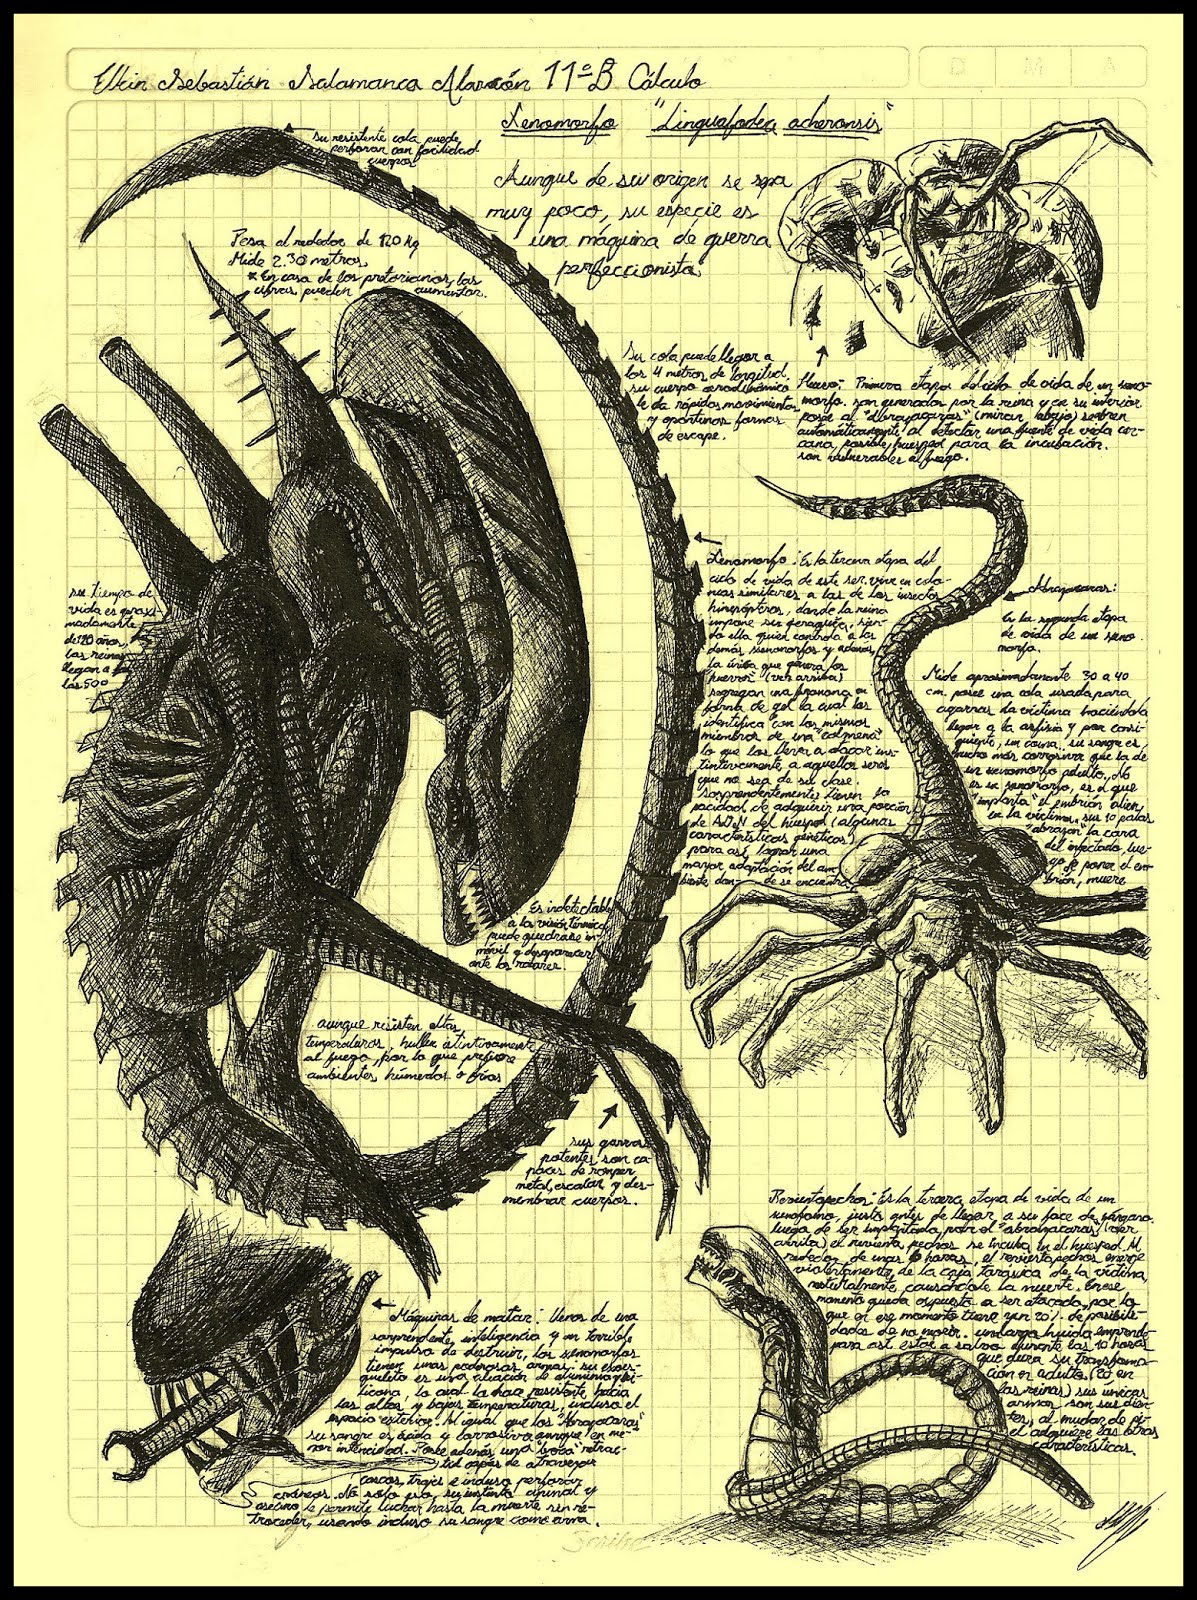 Elkin Sebastián Salamanca Alarcón 11º B Cálculo
D M A
Xenomorfo "Linguafodea acheronsis"
su resistente cola puede
perforar con facilidad
cuerpos
Aunque de su origen se sepa
muy poco, su especie es
una máquina de guerra
perfeccionista
Pesa al rededor de 120 Kg
Mide 2.30 metros
* En caso de los pretorianos, las
cifras pueden aumentar.
Su cola puede llegar a
los 4 metros de longitud.
su cuerpo aerodinámico
le da rápidos movimientos
y oportunas formas
de escape.
Huevo: Primera etapa del ciclo de vida de un xeno-
morfo. son generados por la reina y en su interior
posee al "abrazacaras" (mirar abajo) se abren
automáticamente al detectar una fuente de vida cer-
cana, posible huesped para la incubación.
son vulnerables al fuego.
su tiempo de
vida es aproxi-
madamente
de 120 años,
las reinas
llegan a
los 500
Xenomorfo: Es la tercera etapa del
ciclo de vida de este ser, vive en colo-
nias similares a las de los insectos
himenópteros, donde la reina
impone su jerarquía, sien-
do ella quien controla a los
demás xenomorfos y además
la única que genera los
"huevos" (ver arriba)
segregan una feromona en
forma de gel la cual los
identifica con los mismos
miembros de una "colmena"
lo que los lleva a atacar ins-
tintivamente a aquellos seres
que no sea de su clase.
Sorprendentemente, tienen la
capacidad de adquirir una porción
de A.D.N del huesped (algunas
características genéticas)
para así, lograr una
mayor adaptación del am-
biente don- de se encuentra
Abrazacaras:
Es la segunda etapa
de vida de un xeno
morfo.
Mide aproximadamente 30 a 40
cm. posee una cola usada para
agarrar la víctima haciéndola
llegar a la asfixia y por consi-
guiente, un coma. su sangre es
mucho más corrosiva que la de
un xenomorfo adulto. No
es un xenomorfo, es el que
"implanta" el embrión alien
en la víctima, sus 10 patas
"abrazan" la cara
del infectado, lue-
go de poner el em-
brión, muere
Es indetectable
a la visión térmica
puede quedarse in-
móvil y desaparecer
ante los radares.
aunque resisten altas
temperaturas, huller instintivamente
al fuego, por lo que prefiere
ambientes húmedos o fríos
sus garras
potentes son ca
paces de romper
metal, escalar y des-
membrar cuerpos.
Revientapechos: Es la tercera etapa de vida de un
xenofomo, justo antes de llegar a su fase de zángano.
luego de ser implantado por el "abrazacaras" (ver
arriba) el revienta pechos se incuba en el huesped. Al
rededor de unas horas, el revientapechos emerge
violentamente de la caja toráxica de la víctima,
naturalmente causándole la muerte. En ese
momento queda expuesto a ser atacado, por lo
que en ese momento tiene un 20% de posibili-
dades de no morir. una larga huida emprende
para así estar a salvo durante las 10 horas
que dura su transforma-
ción en adulto. (20 en
las reinas) sus únicas
armas son sus dien-
tes, al mudar de pi-
el adquiere las otras
características.
Máquinas de matar: llenos de una
sorprendente inteligencia y un terrible
impulso de destruir, los xenomorfos
tienen unas poderosas armas. su exoes-
queleto es una aleación de
la cual la hace resistente hacia
las altas y bajas temperaturas, incluso el
espacio exterior. Al igual que los "Abrazacaras"
su sangre es ácida y corrosiva aunque en me-
nor intensidad. Posee además una "boca" retrac-
til capaz de atravezar
cascos, trajes e incluso perforar
cráneos. No solo eso, su instinto animal y
asesino le permite luchar hasta la muerte sin re-
troceder, usando incluso su sangre como arma.
Scribe